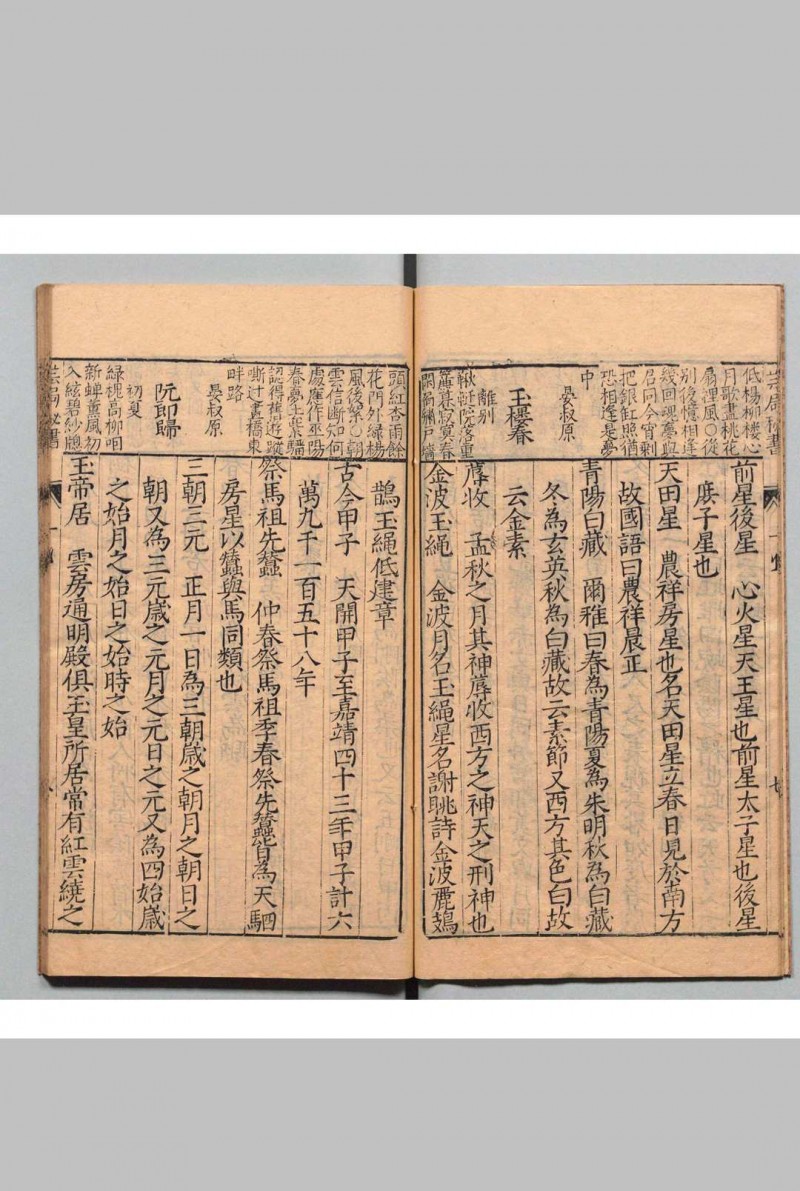 低楊柳樓心
月歌盡桃花
扇裡風〇從
別後憶相逢
幾回魂夢與
君同今宵剩
把銀缸照猶
恐相逢是夢
中
晏叔原
玉樓春
離別
鞦韆院落重
簾暮寂寞春
閑扃繡戶牆
前星後星 心火星天王星也前星太子星也後星
庻子星也
天田星 農祥房星也名天田星立春日見於南方
故國語曰農祥晨正
青陽白藏 爾雅曰春為青陽夏為朱明秋為白藏
冬為玄英秋為白藏故云素節又西方其色白故
云金素
蓐收 孟秋之月其神蓐收西方之神天之刑神也
金波玉繩 金波月名玉繩星名謝眺詩金波麗鳷
頭紅杏雨餘
花門外緑楊
風後絮〇朝
雲信斷知何
處應作巫陽
春夢去紫騮
認得舊遊蹤
嘶过畫橋東
畔路
晏叔原
阮郎歸
初夏
緑槐高柳咽
新蟬薰風初
入絃碧紗牕
鵲玉繩低建章
古今甲子 天開甲子至嘉靖四十三年甲子計六
萬九千一百五十八年
祭馬祖先蠶 仲春祭馬祖季春祭先蠶皆為天駟
房星以蠶與馬同類也
三朝三元 正月一日為三朝歲之朝月之朝日之
朝又為三元歲之元月之元日之元又為四始歲
之始月之始日之始時之始
玉帝居 雲房通明殿俱玉皇所居常有紅雲繞之